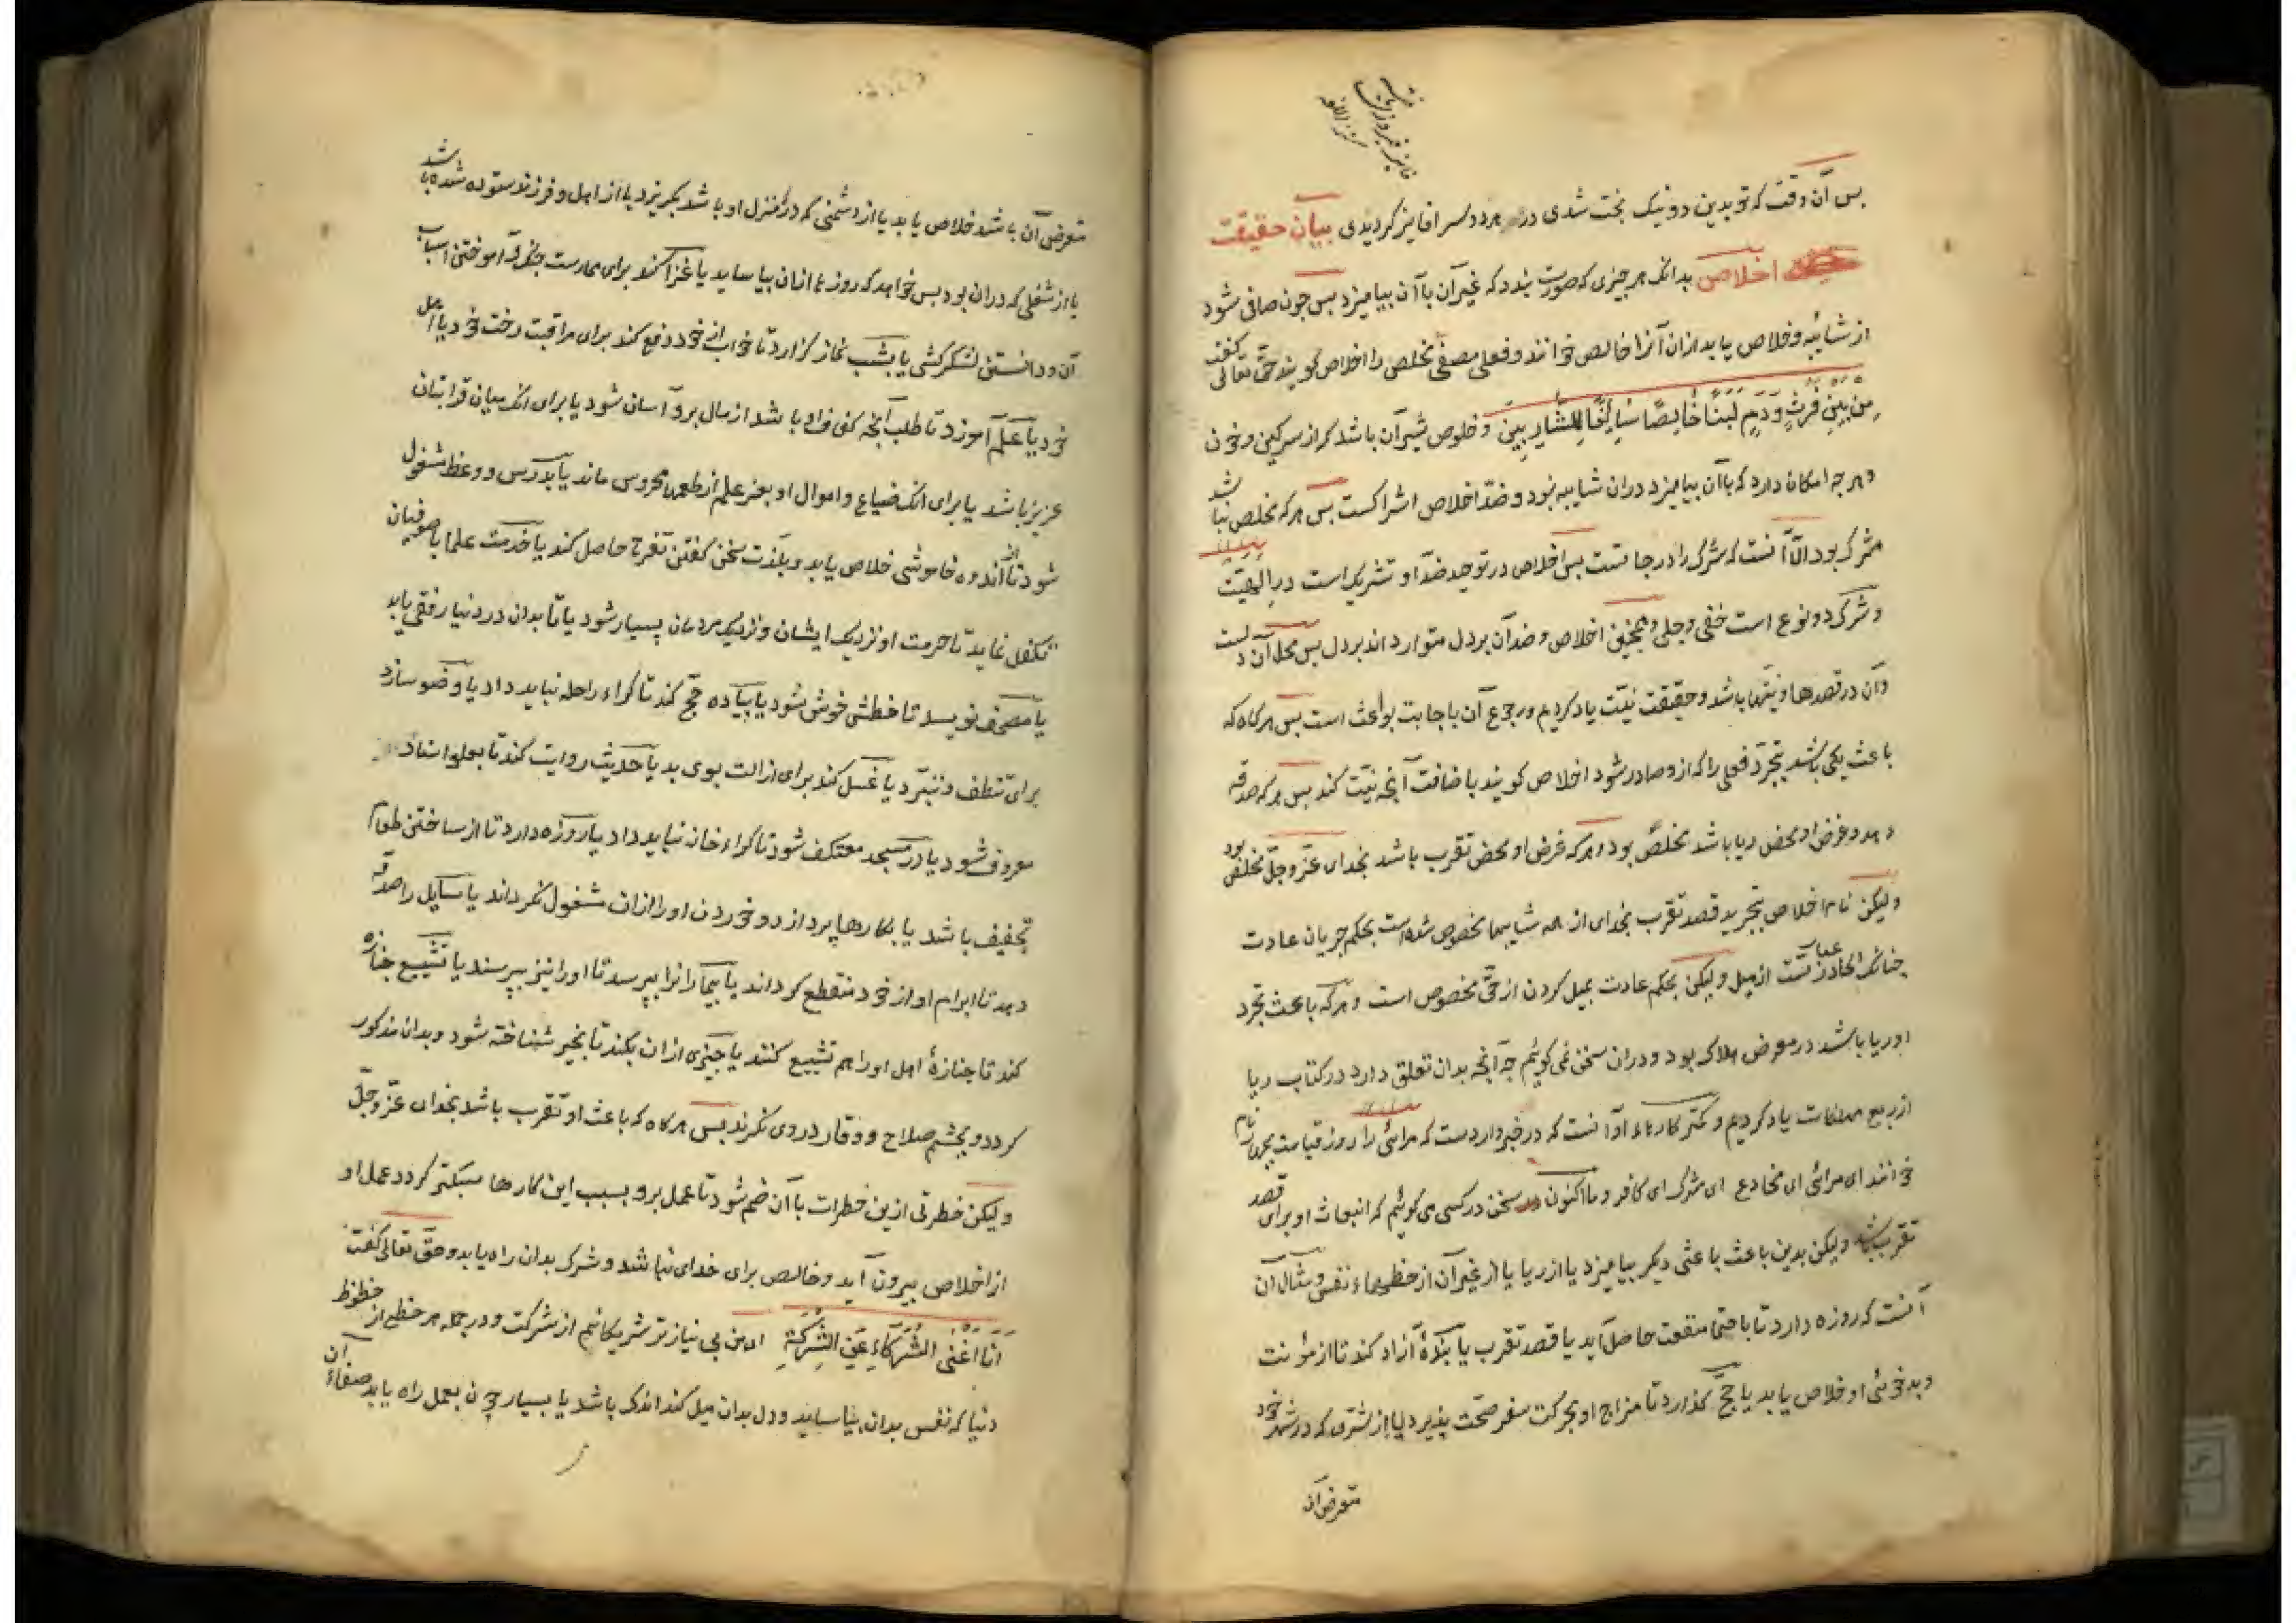 فایز فیروزی یا
پس آن وقت که تو بدین دو نیک بخت شدی در هر دو سرا فایز کردیدی بیان حقیقت
اخلاص بدانک هر چیزی که صورت بندد که غیر آن با آن بیامیزد پس چون صافی شود
از شائبه و خلاص یابد ازان آنرا خالص خوانند و فعل مصفی مخلص را اخلاص کویند حق تعالی کفت
مِنْ بَيْنِ فَرْثٍ وَدَمٍ لَبَنًا خَالِصًا سَائِغًا لِلشَّارِبِينَ و خلوص شیر آن باشد که از سرکین و خون
و هر چه امکان دارد که با آن بیامیزد دران شایبه نبود و ضد اخلاص اشراکست پس هر که مخلص نباشد
مشرک بود الا آنست که شرک را درجاتست پس اخلاص در توحید ضد او تشریک است در الهیت
و شرک دو نوع است خفی و جلی و همچنین اخلاص و ضد آن بر دل متوارد اند بر دل پس محل آن دلست
و آن در قصدها و نیتها باشد و حقیقت نیت یاد کردیم و رجوع آن باجابت بواعث است پس هرکاه که
باعث یکی باشد بتجرد فعلی را که ازو صادر شود اخلاص کویند باضافت آنچه نیت کند پس هر که صدقه
دهد و غرض او محض ریا باشد مخلص بود و هر که غرض او محض تقرب باشد بخدای عز و جل مخلص بود
ولیکن نام اخلاص بتجرید قصد تقرب بخدای از همه شایبها مخصوص شده است بحکم جریان عادت
چنانک الحاد عبارتست از میل ولیکن بحکم عادت بمیل کردن از حق مخصوص است و هر که باعث بتجرد
او ریا باشد در معرض هلاک بود و دران سخن نمی کوئیم چه آنچه بدان تعلق دارد در کتاب ریا
از ربع مهلکات یاد کردیم و کمتر کارهاء او آنست که در خبر واردست که مرائی را روز قیامت بچهار نام
خوانند ای مرائی ای مخادع ای مشرک ای کافر و ما اکنون سخن در کسی می کوئیم که انبعاث او برای قصد
تقرب باشد ولیکن بدین باعث باعثی دیکر بیامیزد یا از ریا یا از غیر آن از حظهاء نفس و مثال آن
آنست که روزه دارد تا با احتما منفعت حاصل آید یا قصد تقرب یا بندهٔ آزاد کند تا از مؤنت
و بدخوئی او خلاص یابد یا حج کذارد تا مزاج او بحرکت سفر صحت پذیرد یا از شری که در شهر خود
متعرض آن
متعرض آن باشد خلاص یابد یا از دشمنی که در منزل او باشد بکریزد یا از اهل و فرزند ستوده شده باشد
یا از شغلی که دران بود پس خواهد که روزها ازان بیاساید یا غزا کند برای ممارست جنک و آموختن اسباب
آن و دانستن لشکرکشی یا بشب نماز کزارد تا خواب از خود دفع کند برای مراقبت رخت خود یا اهل
خود یا علم آموزد تا طلب آنچه کفاف او باشد از مال برو آسان شود یا برای انک میان قرابتان
عزیز باشد یا برای انک ضیاع و اموال او بعز علم از طمعها محروس ماند یا بدرس و وعظ مشغول
شود تا از اندوه خاموشی خلاص یابد و بلذت سخن کفتن تفرج حاصل کند یا خدمت علما یا صوفیان
تکفل نماید تا حرمت او نزدیک ایشان و نزدیک مردمان بسیار شود یا تا بدان در دنیا رفقی یابد
یا مصحف نویسد تا خطش خوش شود یا پیاده حج کند تا کراء راحله نباید داد یا وضو سازد
برای تنظف و تبرد یا غسل کند برای ازالت بوی بد یا حدیث روایت کند تا بعلو اسناد
معروف شود یا در مسجد معتکف شود تا کراء خانه نباید داد یا روزه دارد تا از ساختن طعام
تخفیف باشد یا بکارها پردازد و خوردن او را ازان مشغول نکرداند یا سایل را صدقه
دهد تا ابرام او از خود منقطع کرداند یا بیماران را بپرسد تا او را نیز بپرسند یا تشییع جنازه
کند تا جنازهٔ اهل او را هم تشییع کنند یا چیزی ازان بکند تا بخیر شناخته شود و بدان مذکور
کردد و بچشم صلاح و وقار دروی نکرند پس هرکاه که باعث او تقرب باشد بخدای عز و جل
ولیکن خطرتی ازین خطرات با آن ضم شود تا عمل برو بسبب این کارها سبکتر کردد عمل او
از اخلاص بیرون آید و خالص برای خدای نباشد و شرک بدان راه یابد و حق تعالی کفت
اَنَا اَغْنَی الشُّرَكَاءِ عَنِ الشِّرْكَةِ ای من بی نیازتر شریکانم از شرکت و در جمله هر حظی از حظوظ
دنیا که نفس بدان بیاساید و دل بدان میل کند اندک باشد یا بسیار چون بعمل راه یابد صفاء آن